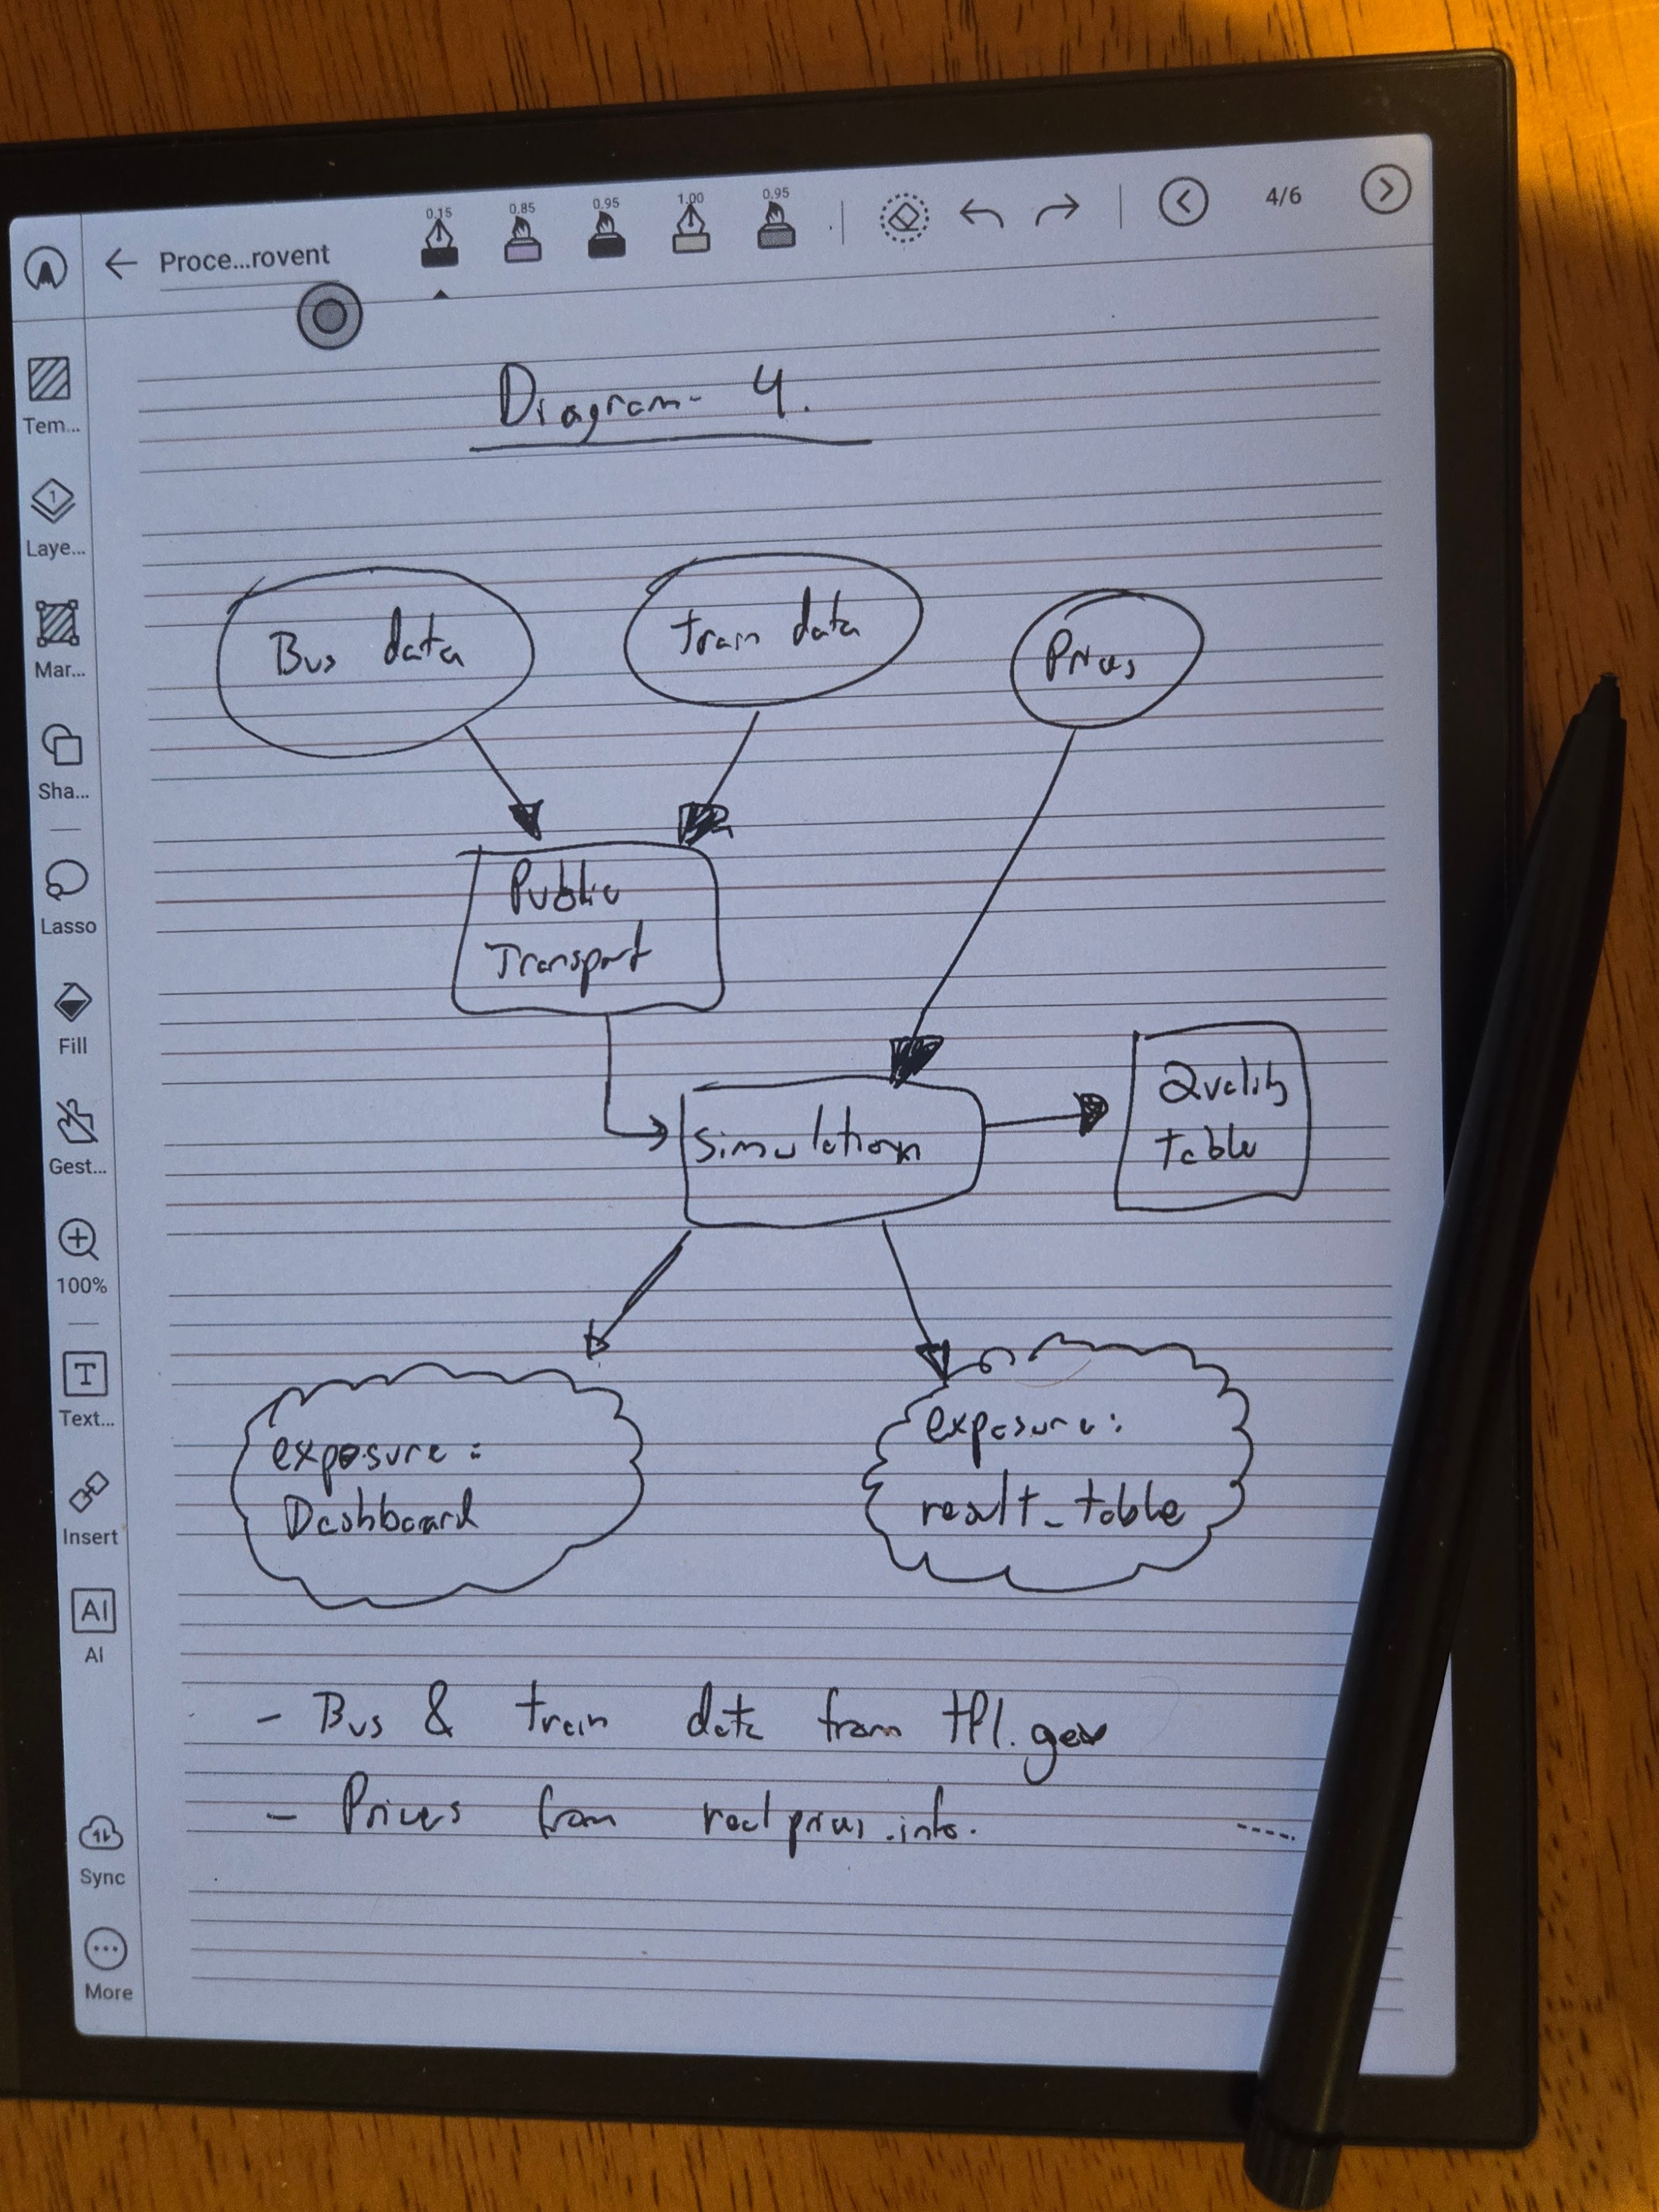 0.15
0.85
0.95
1.00
0.95
4/6
Proce...rovent
Tem...
1
Laye...
Mar...
Sha...
Lasso
Fill
Gest...
100%
T
Text...
Insert
AI
AI
Sync
More
Diagram - 4.
Bus data
train data
Prices
Public
Transport
Simulation
Quality
table
exposure:
Dashboard
exposure:
result_table
- Bus & train data from tfl.gov
- Prices from realprices.info.